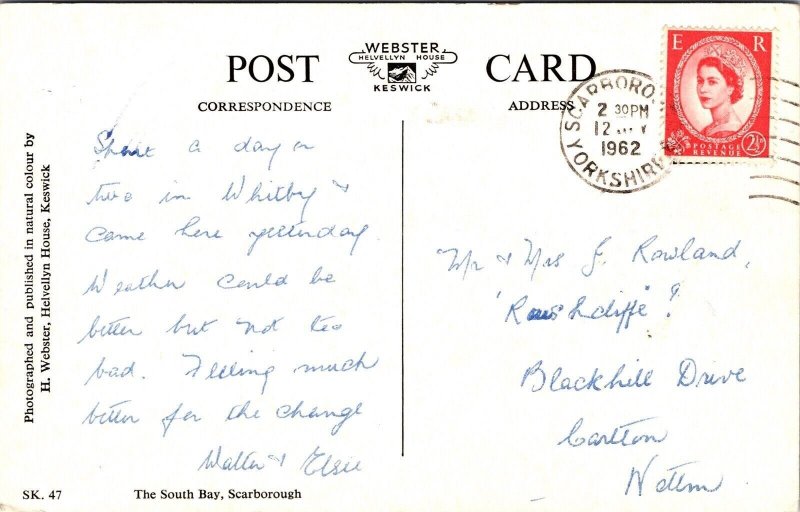 POST
WEBSTER
HELVELLYN HOUSE
KESWICK
CARD
CORRESPONDENCE
ADDRESS
E R
POSTAGE
REVENUE
2½D
SCARBORO
2 30PM
12
1962
YORKSHIRE
Spent a day or
two in Whitby &
came here yesterday.
Weather could be
better but not too
bad. Feeling much
better for the change
Walter & Elsie
Mr & Mrs J. Rowland,
Blackhill Drive
Carlton
Nottm
Photographed and published in natural colour by
H. Webster, Helvellyn House, Keswick
SK. 47
The South Bay, Scarborough